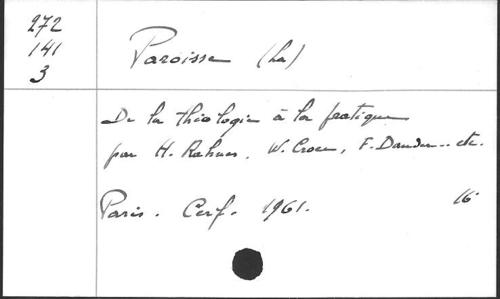 272
141
3
Paroisse (La)
De la théologie à la pratique
par H. Rahner, W. Croce, F. Dander.. etc.
Paris. Cerf. 1961. 16